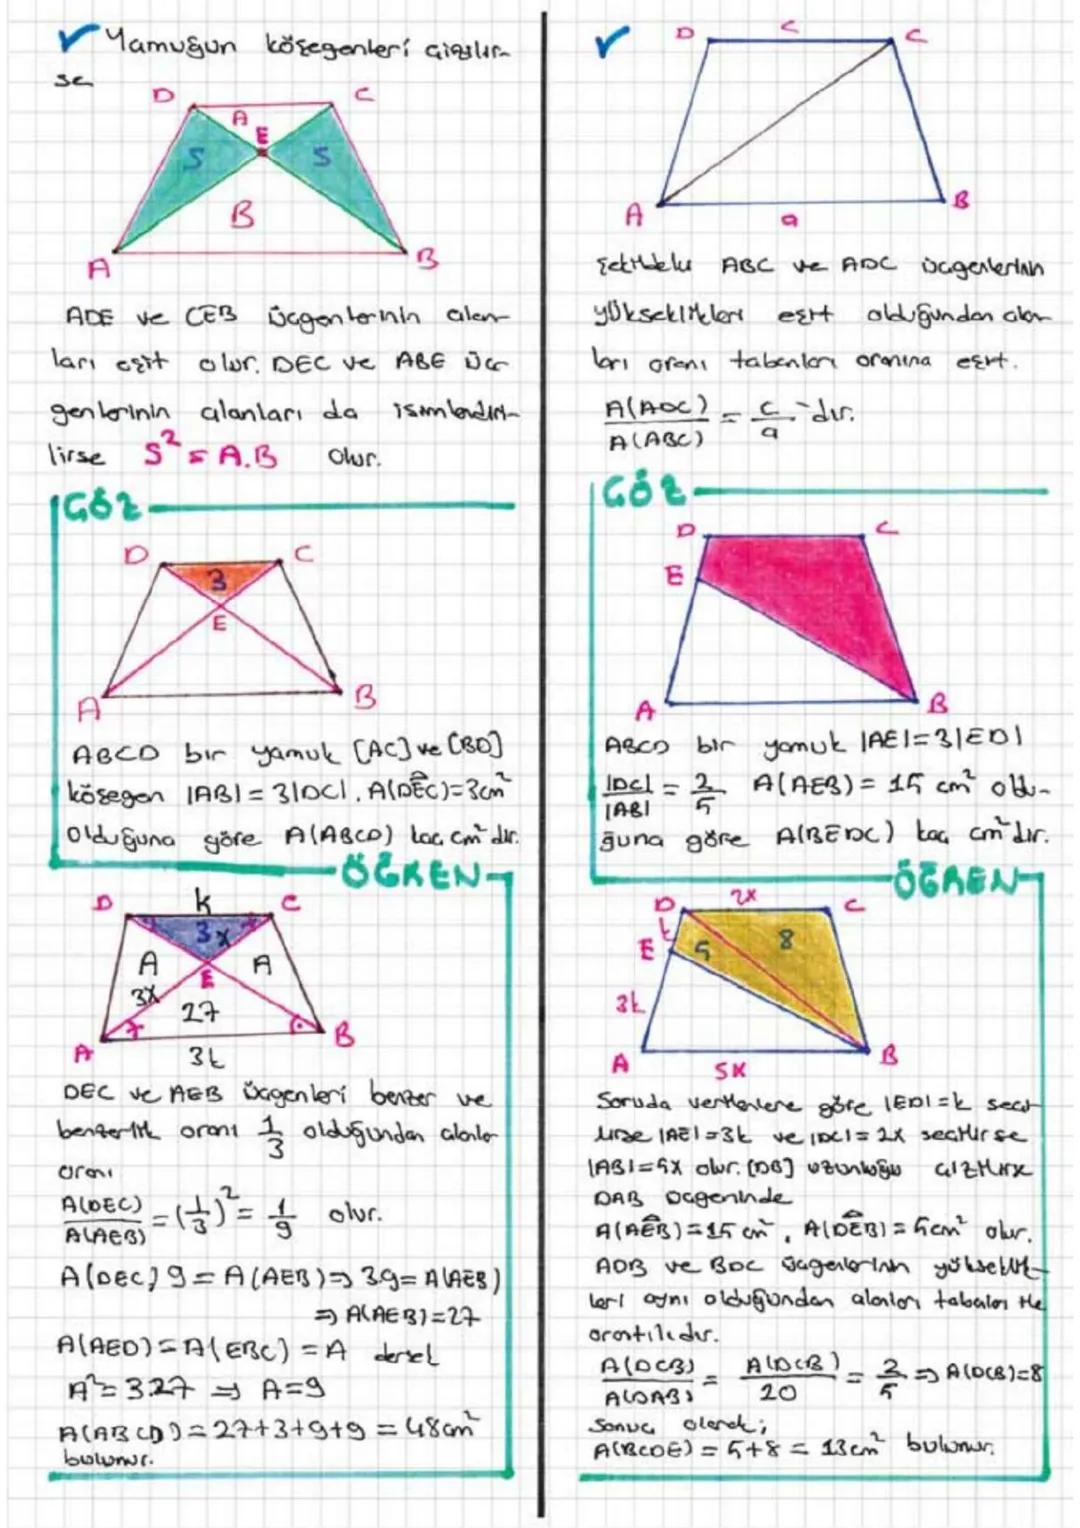 Yamuğun köşegenleri çizilir-
se
D C
A
E
S S
B
A B
ADE ve CEB üçgenlerinin alan-
ları eşit olur. DEC ve ABE üç-
genlerinin alanları da isimlendiri-
lirse S² = A.B olur.
GÖZ
D C
3
E
A B
ABCD bir yamuk [AC] ve [BD]
köşegen |AB| = 3|DC|. A(DEC)=3cm²
olduğuna göre A(ABCD) kaç cm² dir.
ÖĞREN
k
D C
3 x
A E A
3x
27
A B
3k
DEC ve AEB üçgenleri benzer ve
benzerlik oranı 1/3 olduğundan alanlar
oranı
A(DEC)/A(AEB) = (1/3)² = 1/9 olur.
A(DEC) 9 = A(AEB) ⇒ 3.9 = A(AEB)
⇒ A(AEB)=27
A(AED) = A(EBC) = A dersek
A² = 3.27 ⇒ A=9
A(ABCD) = 27+3+9+9 = 48cm²
bulunur.
D c C
A B
a
Şekildeki ABC ve ADC üçgenlerinin
yükseklikleri eşit olduğundan alan-
ları oranı tabanları oranına eşit.
A(ADC)/A(ABC) = c/a 'dır.
GÖZ
D C
E
A B
ABCD bir yamuk |AE|=3|ED|
|DC|/|AB| = 2/5 A(AEB) = 15 cm² oldu-
ğuna göre A(BEDC) kaç cm² dir.
ÖĞREN
2x
D C
k
E 5 8
3k
A B
5x
Soruda verilenlere göre |ED|=k seçi-
lirse |AE|=3k ve |DC|=2x seçilirse
|AB|=5x olur. [DB] uzunluğu çizilirse
DAB üçgeninde
A(AEB)=15 cm², A(DEB)=5cm² olur.
ADB ve BDC üçgenlerinin yükseklik-
leri aynı olduğundan alanları tabanları ile
orantılıdır.
A(DCB)/A(DAB) = A(DCB)/20 = 2/5 ⇒ A(DCB)=8
Sonuç olarak;
A(BCDE) = 5+8 = 13cm² bulunur.